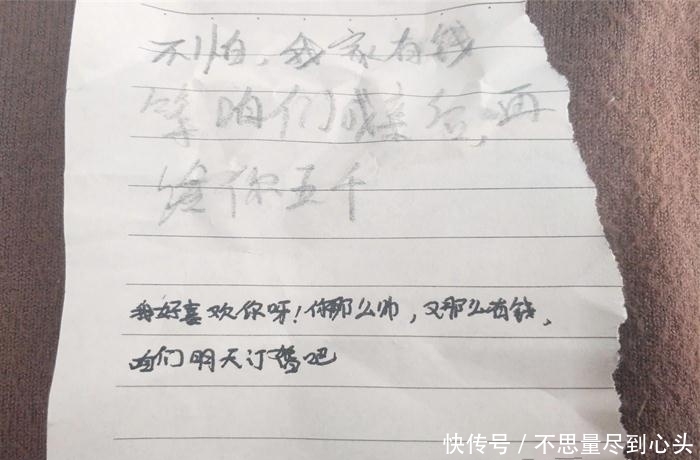 不怕,我家有钱
等咱们成亲后,再
给你五千
我好喜欢你呀!你那么帅,又那么有钱,
咱们明天订婚吧
快传号/不思量尽到心头